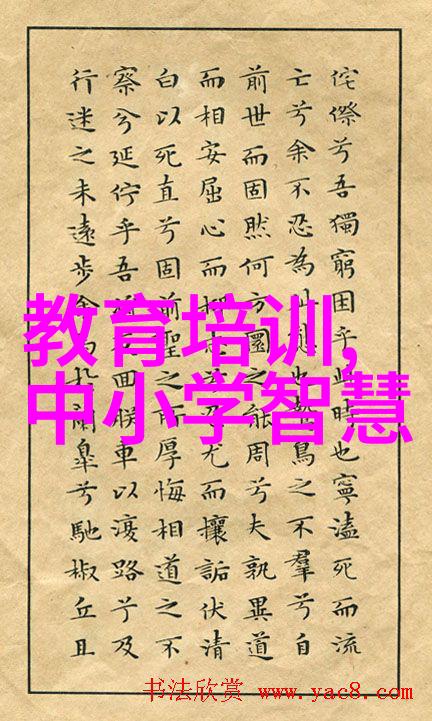 侘傺兮吾獨窮困乎此時也寧溘死而流
亡兮余不忍為此態也鷙鳥之不羣兮自
前世而固然何方圜之能周兮夫孰異道
而相安屈心而抑尤而攘詬伏清
白以死直兮固前聖之所厚悔相道之不
察兮延佇乎吾回朕車以復路兮及
行迷之未遠步余蘭皋兮馳椒丘且
教育培训,
中小学智慧
书法欣赏 www.yac8.com